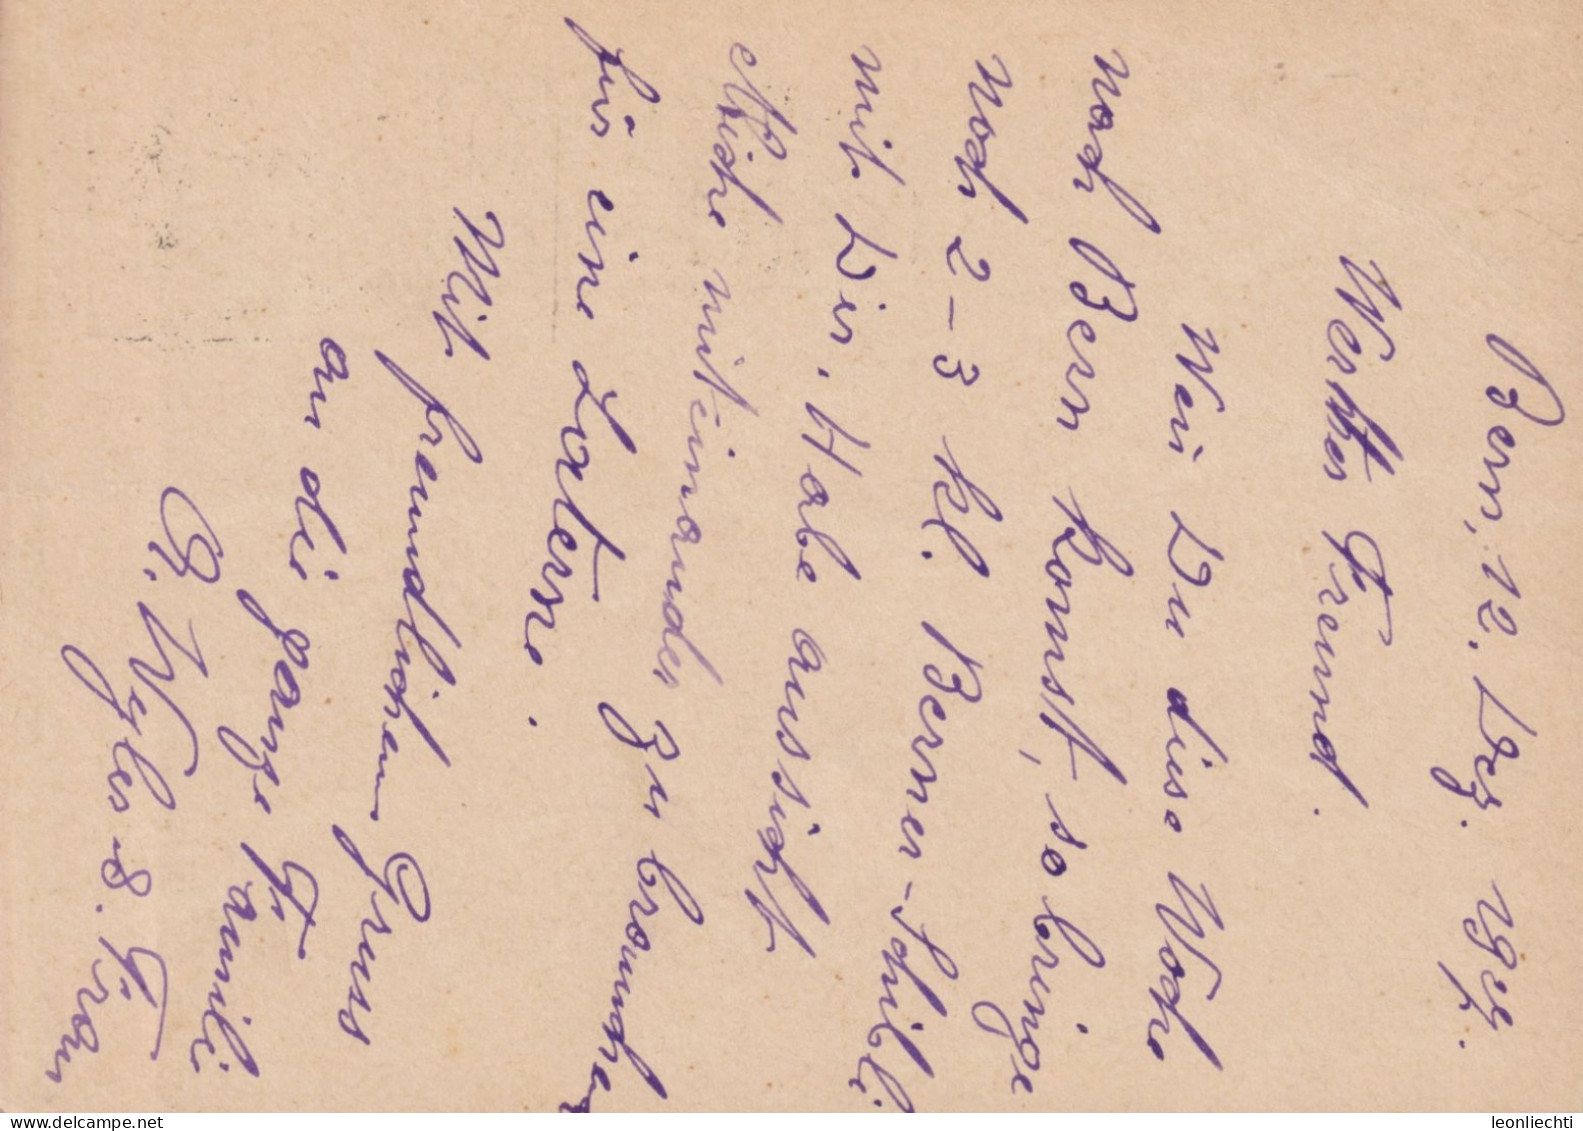 Bern, 12. Dez. 1927.
Werther Freund.
Wen Du diese Woche
nach Bern komst, so bringe
noch 2–3 kl. Berner-Schilli
mit Dir. Habe aussicht
miteinander zu brauchen
für eine Laterne.
Mit freundlichem Gruss
an die ganze Familie
G. Wyler & Frau
leonliechti